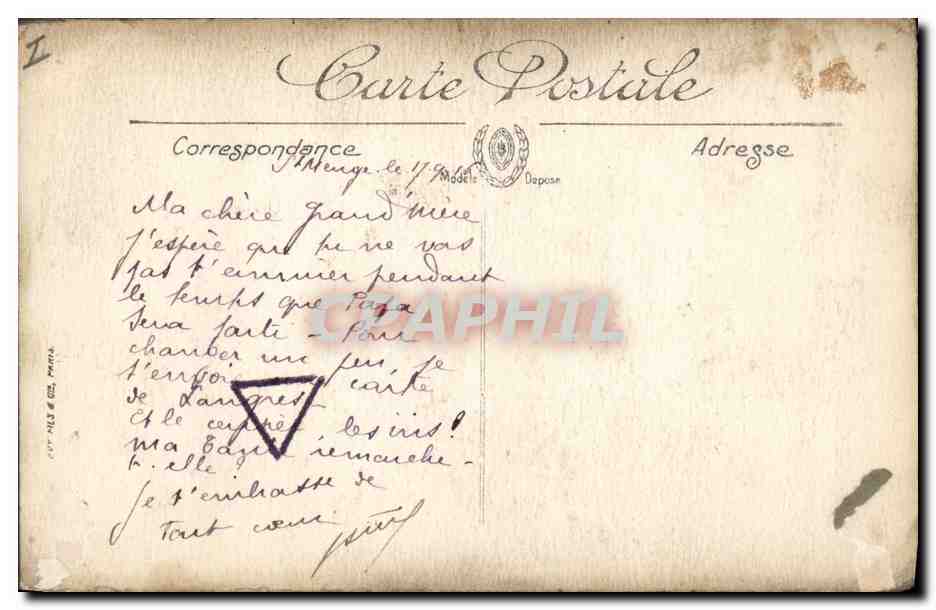 I
Carte Postale
Correspondance
Adresse
St Menge le 17
Modèle Déposé
Ma chère Grand'Mère
J'espère que tu ne vas
pas t'ennuier pendant
le temps que Papa
CPAPHIL
Sera parti - Pour
changer un peu je
t'envoie carte
de Langres
Et le les iris!
ma remarche-
t-elle?
Je t'embrasse de
Tout cœur
FILS & CIE, PARIS.